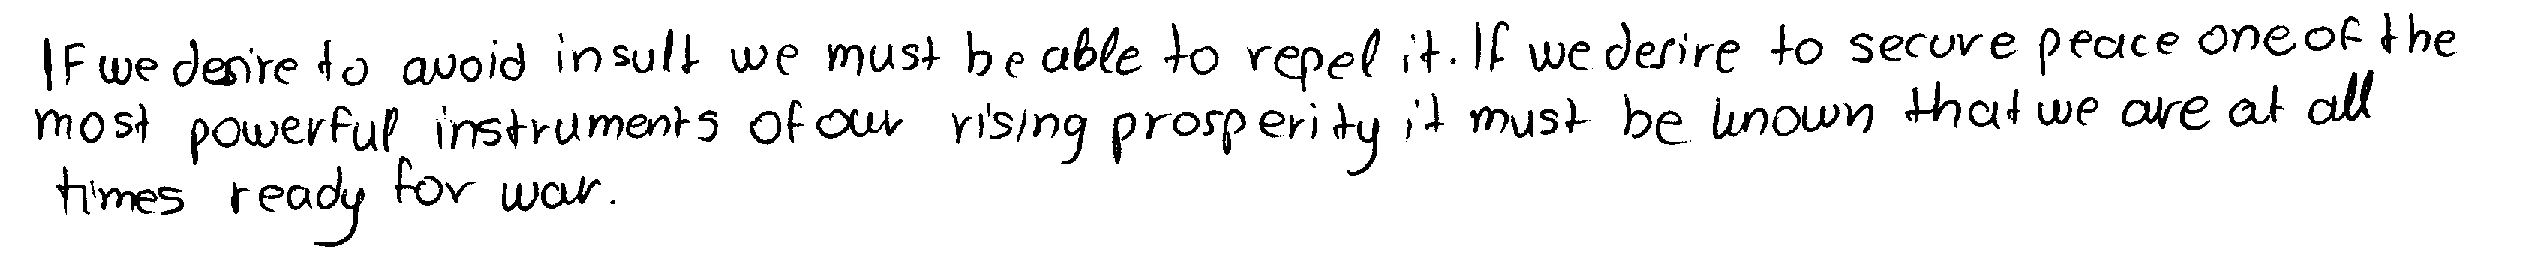 If we desire to avoid insult we must be able to repel it. If we desire to secure peace one of the
most powerful instruments of our rising prosperity it must be known that we are at all
times ready for war.